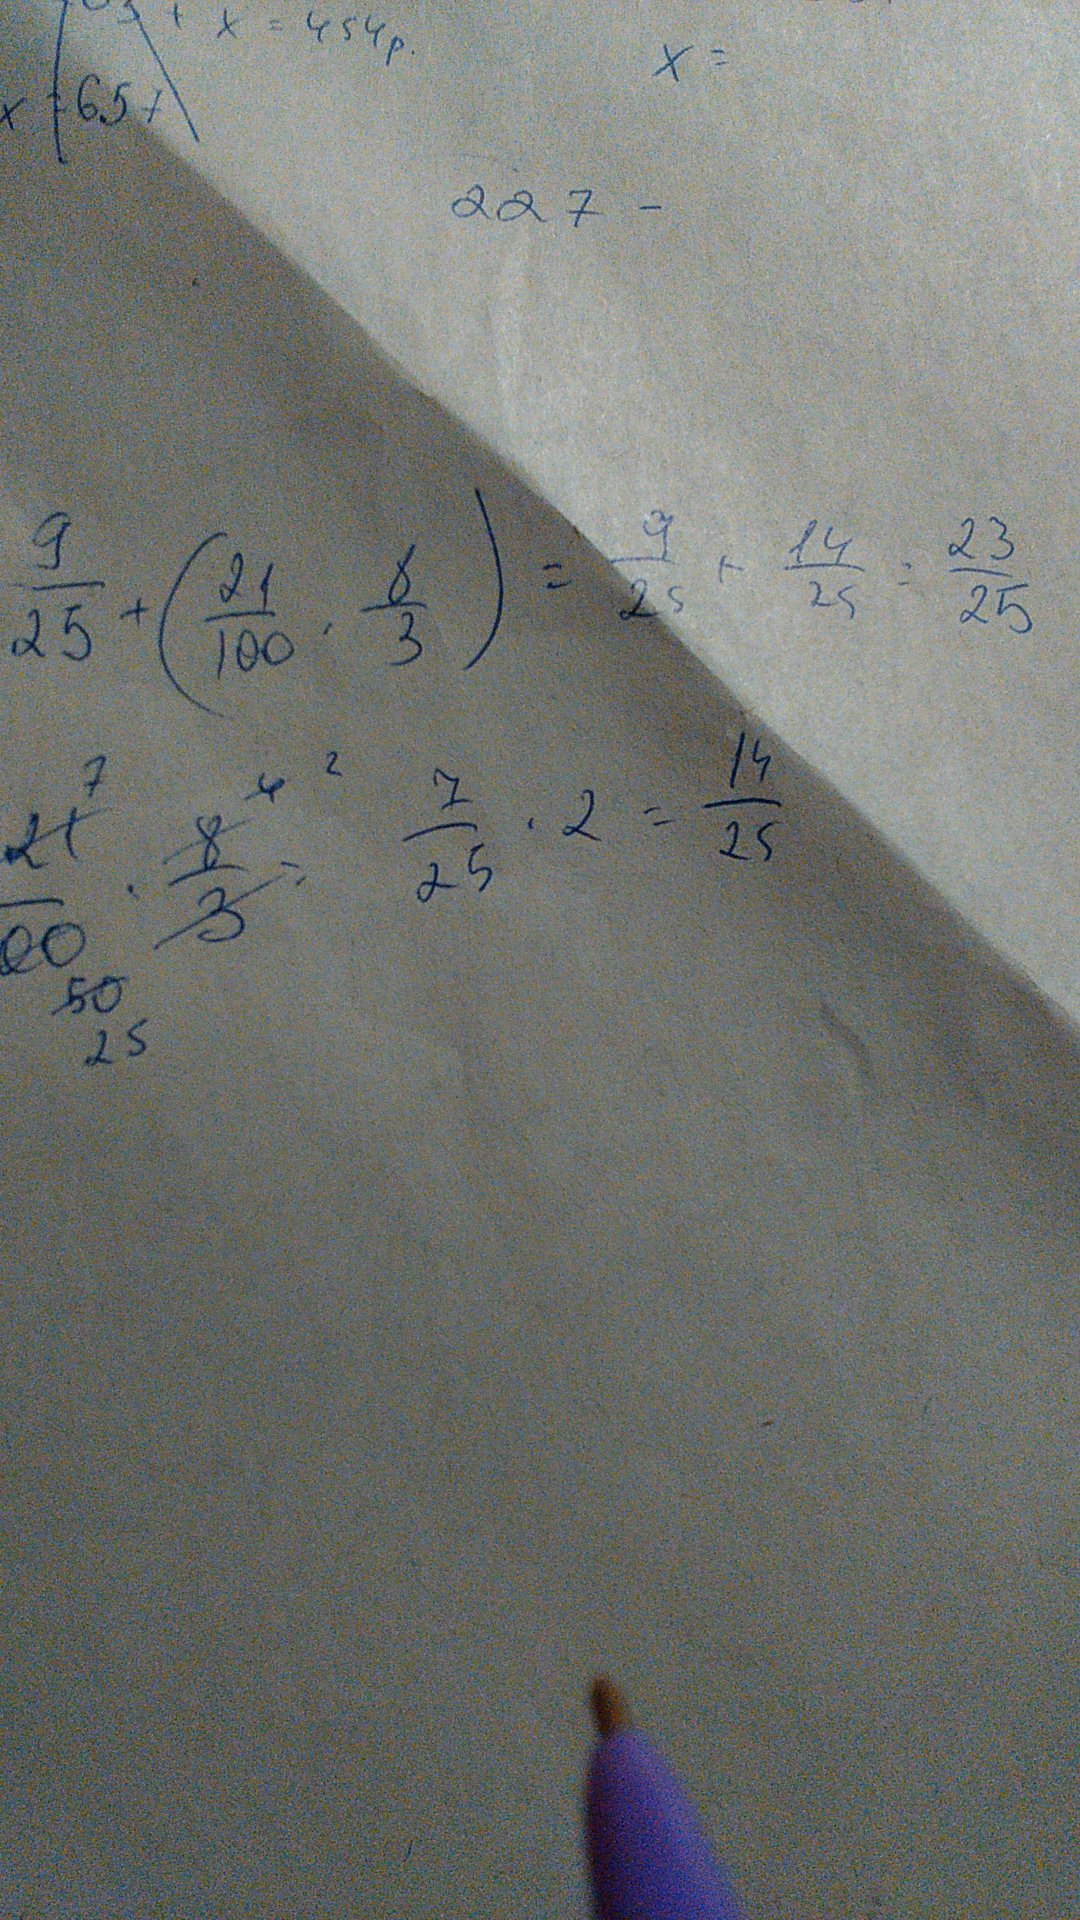 + x = 454р.
x = 65 +
x =
227 -
9/25 + (21/100 · 8/3) = 9/25 + 14/25 = 23/25
7 4 2
21/00 · 8/3 = 7/25 · 2 = 14/25
50
25